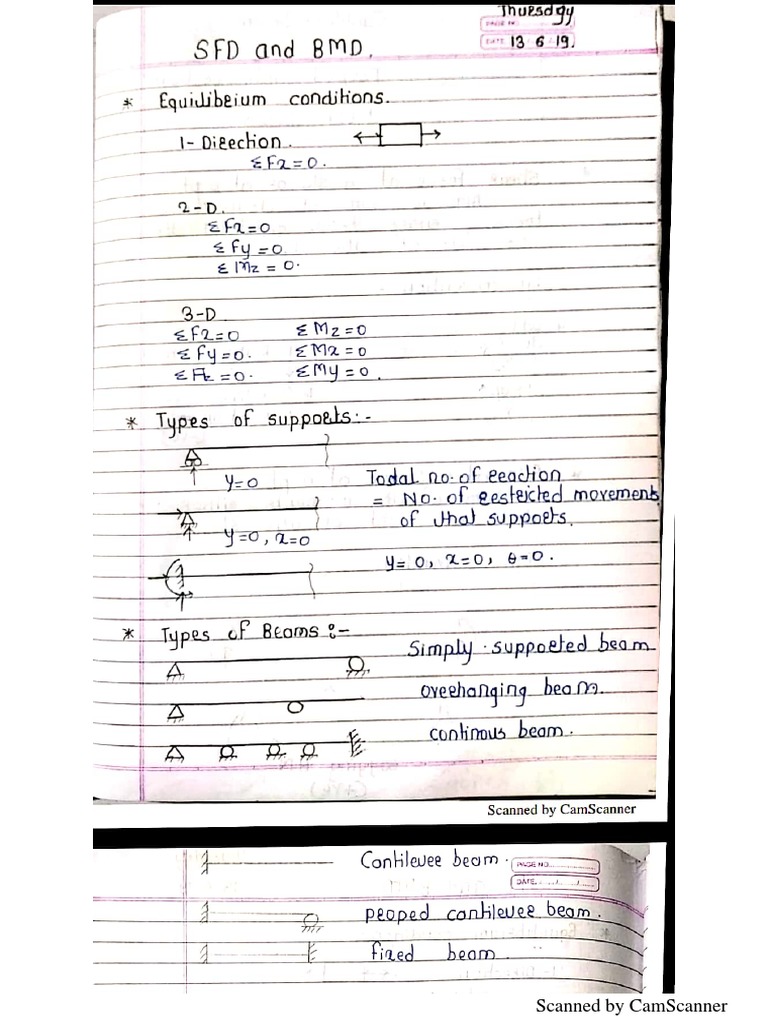 Thuesday
PAGE NO
DATE 13 6 19.
SFD and BMD.
* Equilibrium conditions.
1- Direction.
ΣFx=0.
2-D.
ΣFx=0
ΣFy=0
ΣMz=0.
3-D
ΣFx=0 ΣMz=0
ΣFy=0. ΣMx=0
ΣFz=0. ΣMy=0.
* Types of supports:-
y=0
y=0, x=0
Todal no. of reaction
= No. of restricted movement
of that supports.
y=0, x=0, θ=0.
* Types of Beams :-
Simply supported beam
overhanging beam.
continous beam.
Scanned by CamScanner
Cantilever beam.
PAGE NO.
DATE
propped cantilever beam.
fixed beam
Scanned by CamScanner